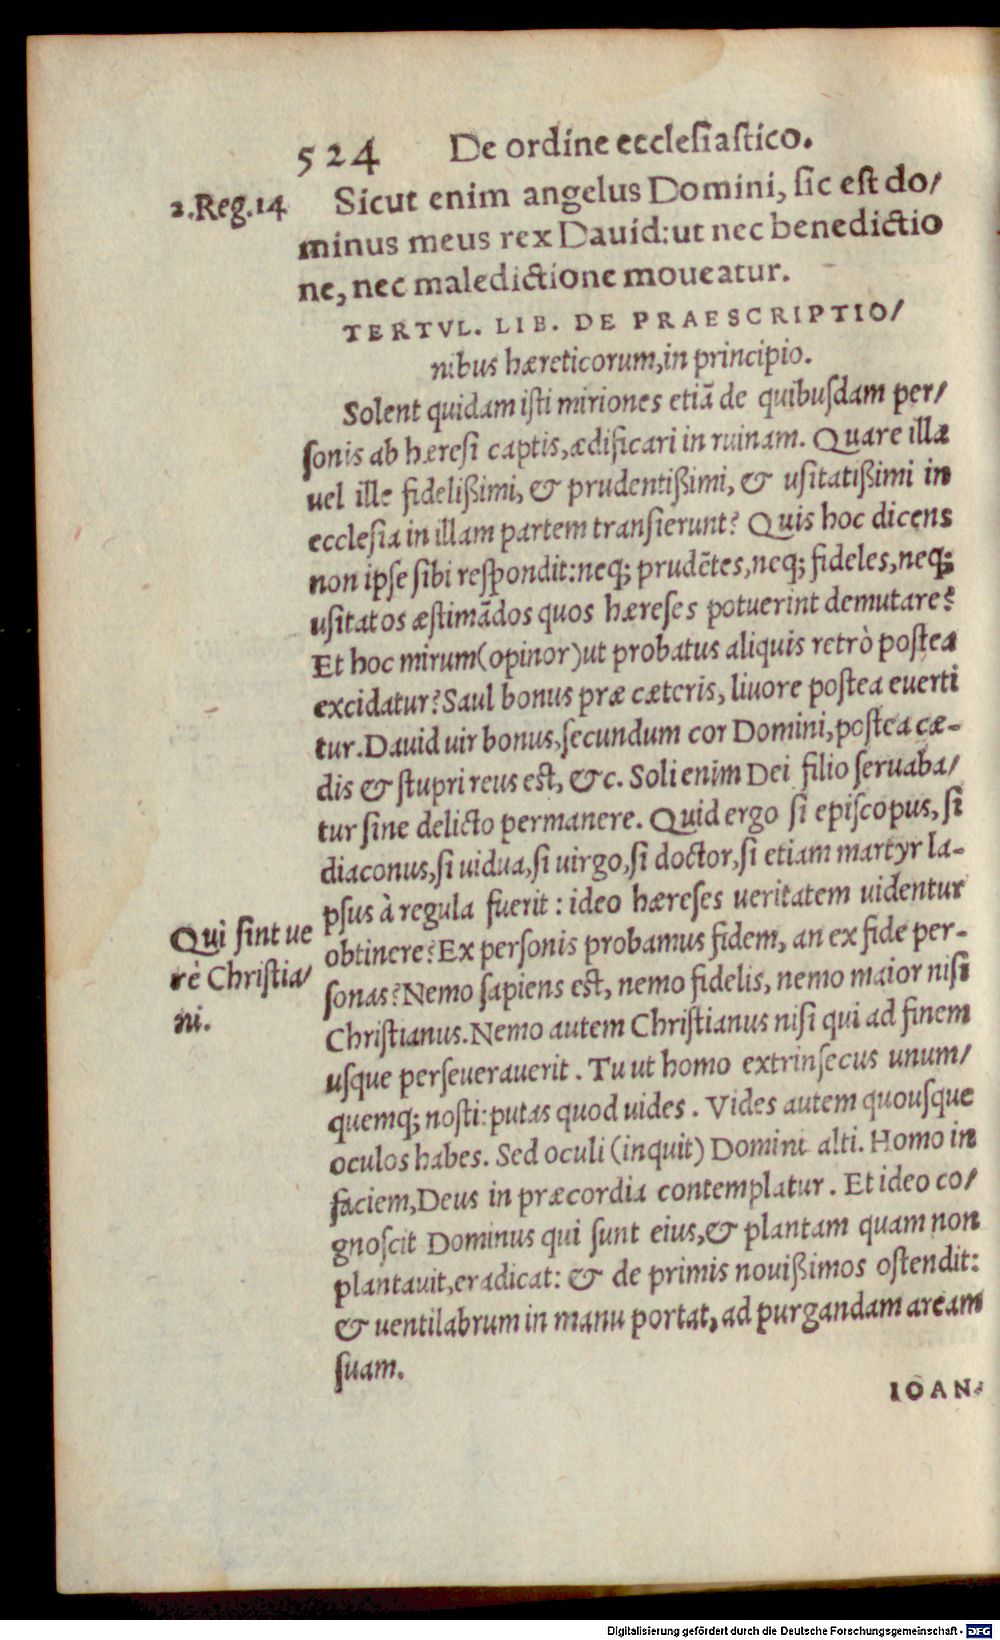 524 De ordine ecclesiastico.
2.Reg.14
Sicut enim angelus Domini, sic est do/
minus meus rex Dauid:ut nec benedictio
ne, nec maledictione moueatur.
TERTVL. LIB. DE PRAESCRIPTIO/
nibus hæreticorum,in principio.
Solent quidam isti miriones etiã de quibusdam per/
sonis ab hæresi captis,ædificari in ruinam. Quare illæ
uel ille fidelißimi, & prudentißimi, & usitatißimi in
ecclesia in illam partem transierunt? Quis hoc dicens
non ipse sibi respondit:neq; prudẽtes,neq; fideles,neq;
usitatos æstimãdos quos hæreses potuerint demutare?
Et hoc mirum(opinor)ut probatus aliquis retrò postea
excidatur?Saul bonus præ cæteris, liuore postea euerti
tur.Dauid uir bonus,secundum cor Domini,postea cæ-
dis & stupri reus est, &c. Soli enim Dei filio seruaba/
tur sine delicto permanere. Quid ergo si episcopus, si
diaconus,si uidua,si uirgo,si doctor,si etiam martyr la-
psus à regula fuerit : ideo hæreses ueritatem uidentur
Qui sint ue
rè Christia/
ni.
obtinere?Ex personis probamus fidem, an ex fide per-
sonas?Nemo sapiens est, nemo fidelis, nemo maior nisi
Christianus.Nemo autem Christianus nisi qui ad finem
usque perseuerauerit . Tu ut homo extrinsecus unum/
quemq; nosti:putas quod uides . Vides autem quousque
oculos habes. Sed oculi (inquit) Domini alti. Homo in
faciem,Deus in præcordia contemplatur . Et ideo co/
gnoscit Dominus qui sunt eius,& plantam quam non
plantauit,eradicat: & de primis nouißimos ostendit:
& uentilabrum in manu portat, ad purgandam aream
suam.
IOAN.
Digitalisierung gefördert durch die Deutsche Forschungsgemeinschaft - DFG